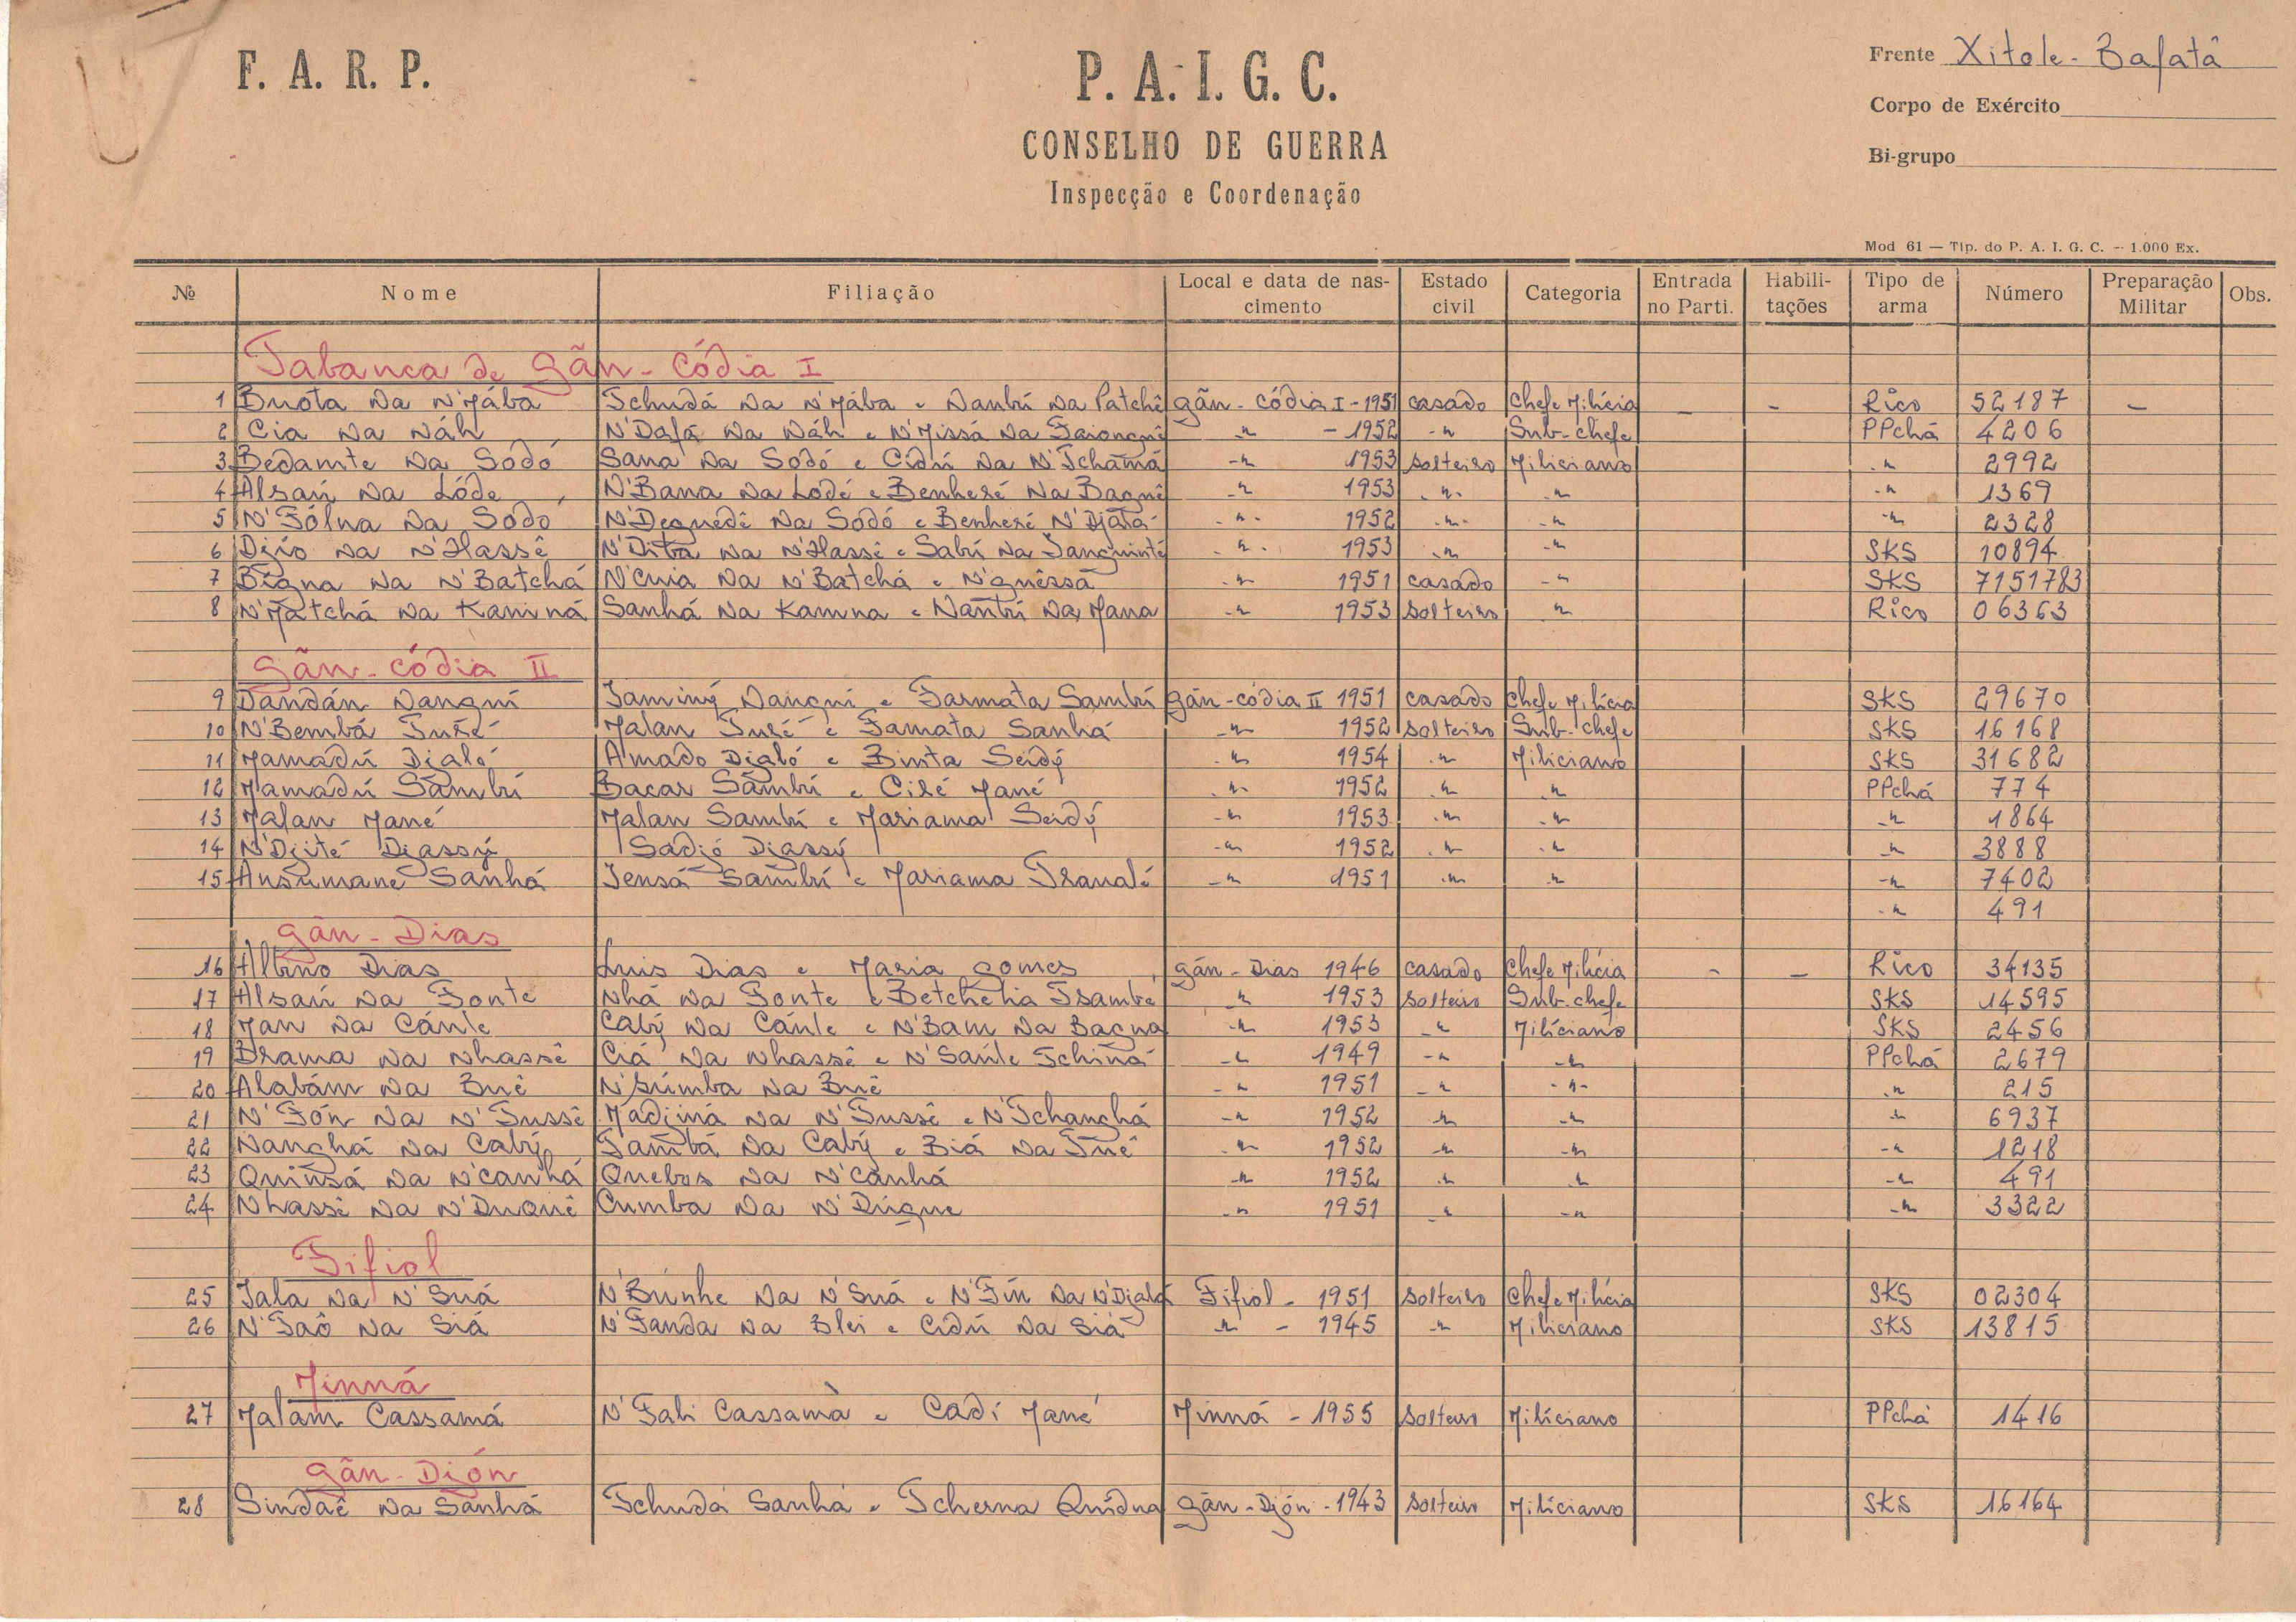 F. A. R. P.
P. A. I. G. C.
CONSELHO DE GUERRA
Inspecção e Coordenação
Frente Xitole - Bafatá
Corpo de Exército
Bi-grupo
Mod 61 — Tip. do P. A. I. G. C. — 1.000 Ex.
№ Nome Filiação Local e data de nascimento Estado civil Categoria Entrada no Parti. Habilitações Tipo de arma Número Preparação Militar Obs.
Tabanca de Gãn - Códia I
1 Buota Na N'Mába Tchudá Na N'Mába e Nambú Na Patchê Gãn - Códia I - 1951 casado Chefe Milícia - - Rico 52187 -
2 Cia Na Náh N'Dafá Na Náh e N'Missá Na - " - 1952 - " Sub-chefe PPchá 4206
3 Bedamte Na Sodó Sana Na Sodó e Cidú Na N'Tchamá - " 1953 solteiro Miliciano - " 2992
4 Alsaú Na Lóde N'Bana Na Lodé e Benheré Na Bagnê - " 1953 - " - - " - " 1369
5 N'Fólna Na Sodó N'Deguedê Na Sodó e Benheré N'Djatá - " - 1952 - " - - " - " 2328
6 Djío Na N'Hassê N'Ditá Na N'Hassê e Sabú Na - " - 1953 - " - " SKS 10894
7 Bigna Na N'Batchá N'Cuia Na N'Batchá e N'guêssa - " 1951 casado - " SKS 7151783
8 N'Matchá Na Kamná Sanhá Na Kamna e Nambú Na Mana - " 1953 solteiro - " Rico 06363
Gãn - Códia II
9 Dandán Nanquí Taminý Nanquí e Farmata Sambú Gãn - Códia II 1951 casado Chefe Milícia SKS 29670
10 N'Bembá Turé Malan Turé e Famata Sanhá - " 1952 solteiro Sub-chefe SKS 16168
11 Mamadú Djaló Amado Djaló e Binta Seidý - " 1954 - " Miliciano SKS 31682
12 Mamadú Sambú Bacar Sambú e Ciré Mané - " 1952 - " - " PPchá 774
13 Malan Mané Malan Sambú e Mariama Seidý - " 1953 - " - " - " 1864
14 N'Djité Djassý Sadjó Djassý - " 1952 - " - " - " 3888
15 Ansumane Sanhá Sambú e Mariama - " 1951 - " - " - " 7402
- " 491
Gãn - Dias
16 Albino Dias Luis Dias e Maria Gomes Gãn - Dias 1946 casado Chefe Milícia - - Rico 34135
17 Alsaú Na Fonte Nhá Na Fonte e Betchetia Tsambé - " 1953 solteiro Sub-chefe SKS 14595
18 Man Na Cánle Cabý Na Cánle e N'Bam Na Bagna - " 1953 - " Miliciano SKS 2456
19 Brama Na Nhassê Ciá Na Nhassê e N'Saúle Tchiná - " 1949 - " - " PPchá 2679
20 Alabám Na Buê N'Súmba Na Buê - " 1951 - " - " - " 215
21 N'Fón Na N'Tussê Madjiná Na N'Tussê e N'Tchanghá - " 1952 - " - " - " 6937
22 Nanghá Na Cabý Tambá Na Cabý e Biá Na Tuê - " 1952 - " - " - " 1218
23 Quinsá Na N'Canhá Quebos Na N'Canhá - " 1952 - " - " - " 491
24 Nhassê Na N'Duguê Cumba Na N'Dúgue - " 1951 - " - " - " 3322
Fifiol
25 Tala Na N'Suá N'Búnhe Na N'Suá e N'Fín Na N'Djalá Fifiol - 1951 solteiro Chefe Milícia SKS 02304
26 N'Faô Na Siá N'Fanda Na Blei e Cidú Na Siá - " - 1945 - " Miliciano SKS 13815
Minná
27 Malam Cassamá N'Fali Cassamà e Cadí Mané Minná - 1955 solteiro Miliciano PPchá 1416
Gãn - Djón
28 Sindaê Na Sanhá Tchudá Sanhá e Tcherna Quídna Gãn - Djón - 1943 solteiro Miliciano SKS 16164